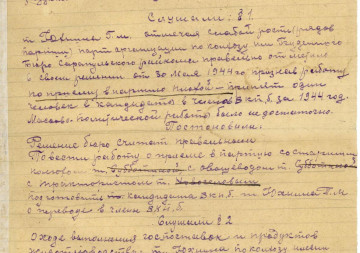 Слушали: § 1.
т. Г.М. отмечая слабость роста рядов
партии парторганизации по колхозу им. Буденного
бюро Сарапульского райкома правильно отметило
в своем решении от 30 мая 1944 го признав работу
по приему в партию плохой – принят один
человек в кандидаты в члены ВКП.б. за 1944 год.
Массово-политической работы было недостаточно.
Постановили.
Решение бюро считать правильным
Повести работу о приеме в партию со старшим
конюхом с овощеводом
с трактористом т.
подготовить кандидата ВКП.б. т. Юхнина П.М
о переводе в члены ВКП.б.
Слушали § 2
О ходе выполнения госпоставок и продуктов
животноводства т. Юхнина по колхозу имени